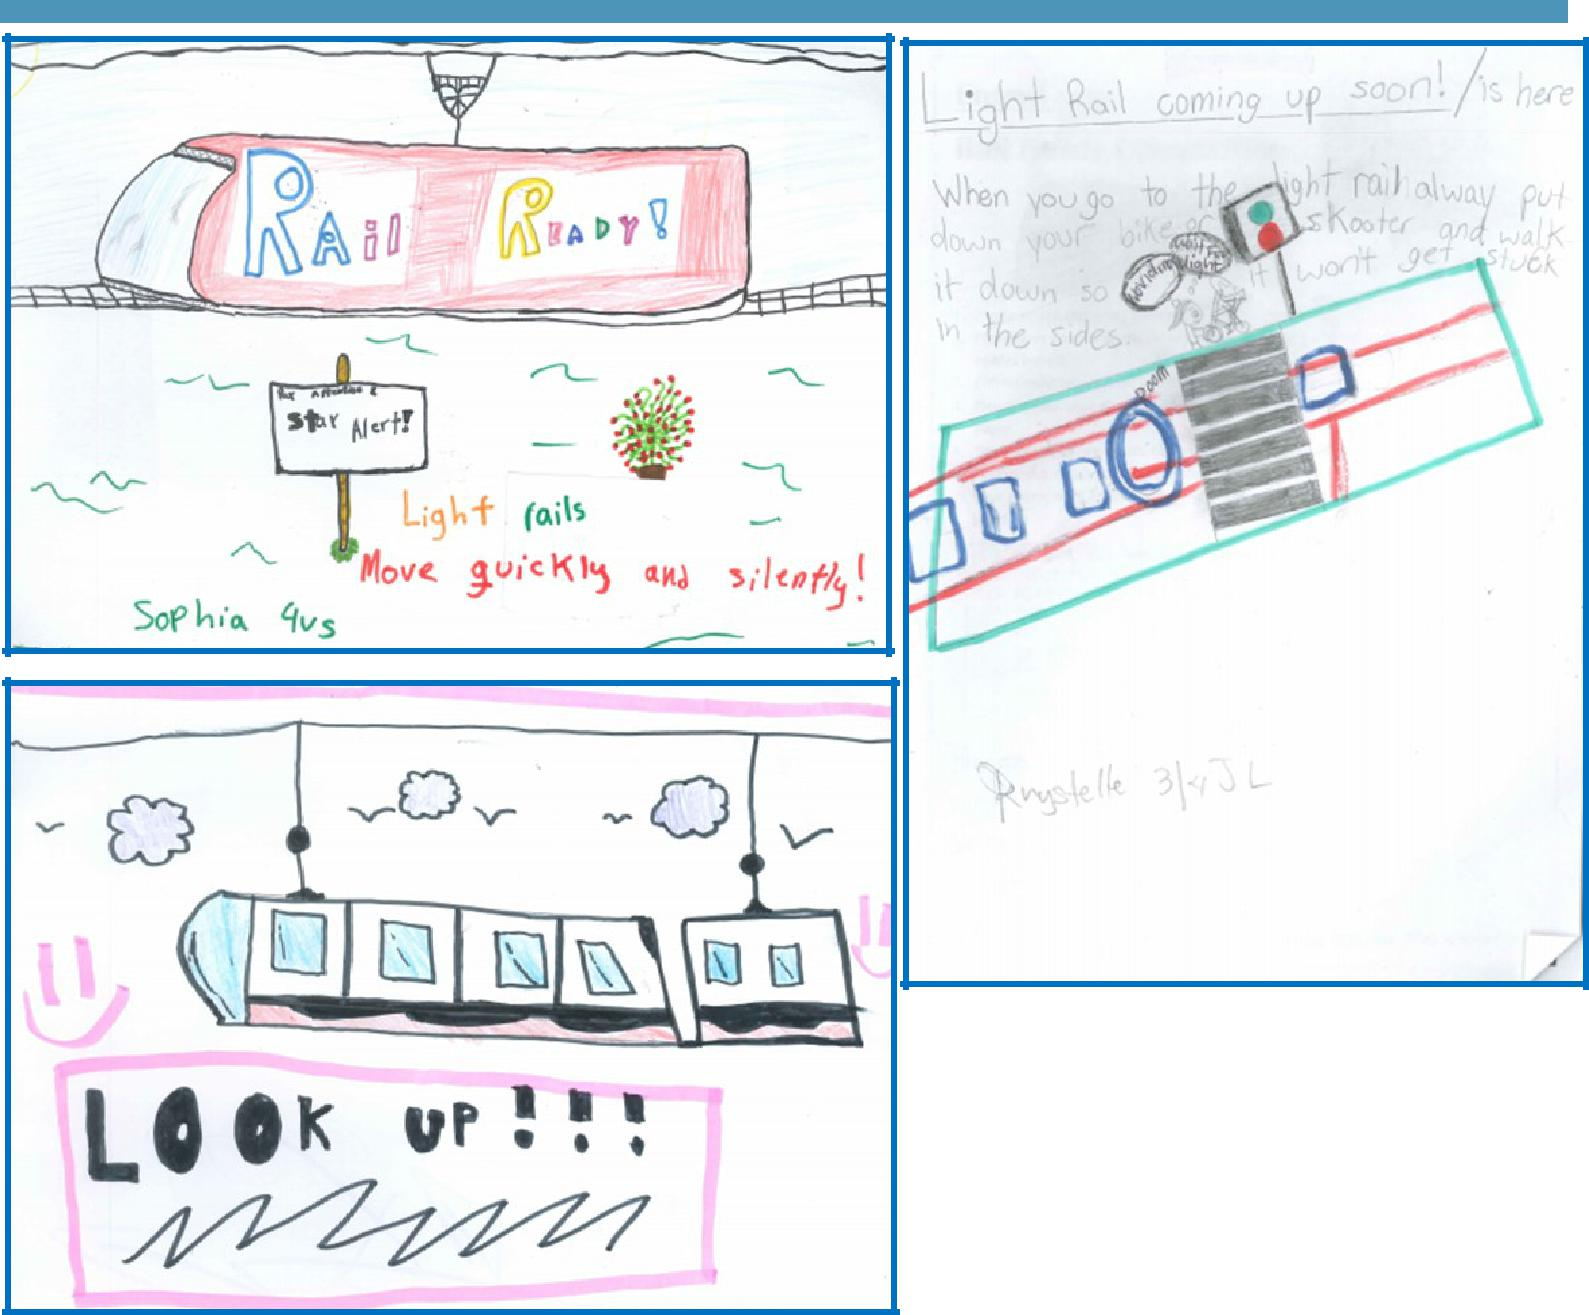 Rail Ready!
Pay Attention &
Star Alert!
Light rails
Move quickly and silently!
Sophia 4vs
Light Rail coming up soon! / is here
When you go to the light railhalway put
down your bike or skooter and walk
it down so it won't get stuck
in the sides.
light
Doom
3/4JL
LOOK UP!!!